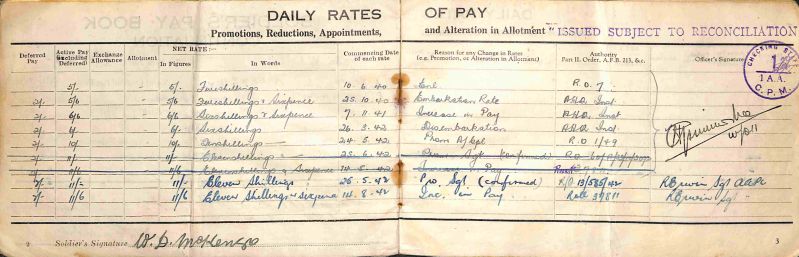 DAILY RATES OF PAY
Promotions, Reductions, Appointments, and Alteration in Allotment "ISSUED SUBJECT TO RECONCILIATION
Deferred Pay Active Pay (excluding Deferred) Exchange Allowance Allotment NET RATE:— In Figures In Words Commencing Date of each rate Reason for any Change in Rates (e.g. Promotion, or Alteration in Allotment) Authority Part II. Order, A.F.B. 213, &c. Officer's Signature
CHECKING
1
I.A.A.
C.P.M.
5/- 5/- Fiveshillings 10.6.40 Enl R.O 7
2/- 5/6 5/6 Fiveshillings & Sixpence 25.10.40 Embarkation Rate A.H.Q. Inst
2/- 6/6 6/6 Sixshillings & Sixpence 7.11.41 Increase in Pay A.H.Q. Inst
2/- 6/- 6/- Sixshillings 26.3.42 Disembarkation A.H.Q. Inst
2/- 10/- 10/- Tenshillings 24.3.42 Prom A/Sgt R.O 1/49
2/- 11/- Elevenshillings 25.6.42 Sgt (confirmed) R.O
11/6 Elevenshillings & Sixpence 14.5.42 Increase in Pay
2/- 11/- 11/- Eleven Shillings 26.5.42 Pro. Sgt (confirmed) R/O 13/585/42 R Erwin Sgt
2/- 11/6 11/6 Eleven Shillings & sixpence 14.8.42 Inc. in Pay Roll 39811 R Erwin Sgt
2 Soldier's Signature W. D. McKenzie 3